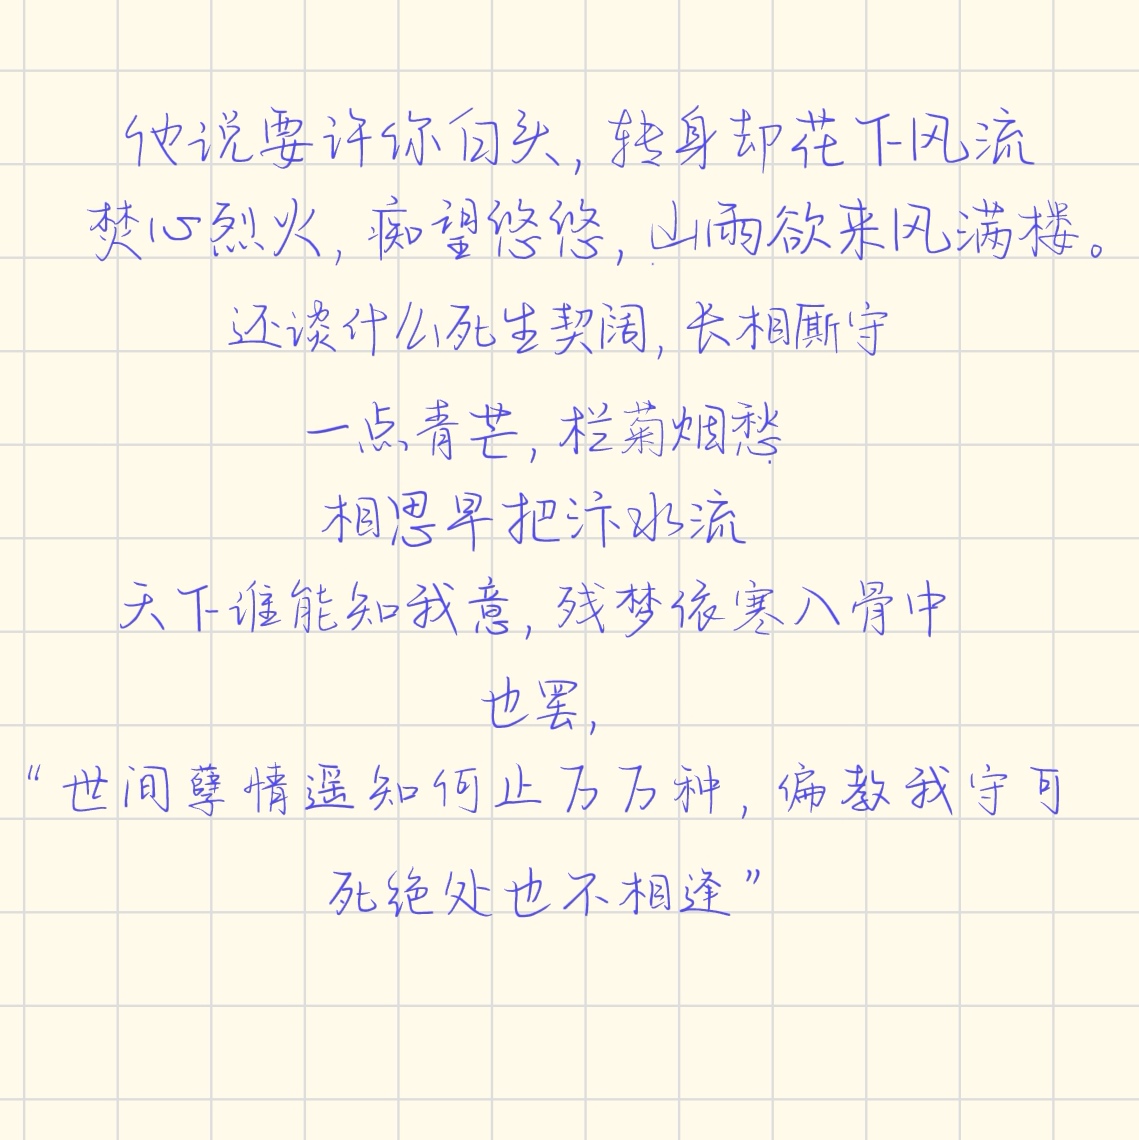 他说要许你白头,转身却花下风流
焚心烈火,痴望悠悠,山雨欲来风满楼。
还谈什么死生契阔,长相厮守
一点青芒,栏菊烟愁
相思早把汴水流
天下谁能知我意,残梦依寒入骨中
也罢,
“世间孽情遥知何止万万种,偏教我守可
死绝处也不相逢”